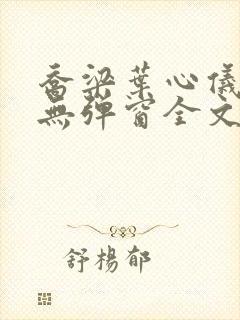 喬梁葉心儀
無彈窗全文
舒楊郁